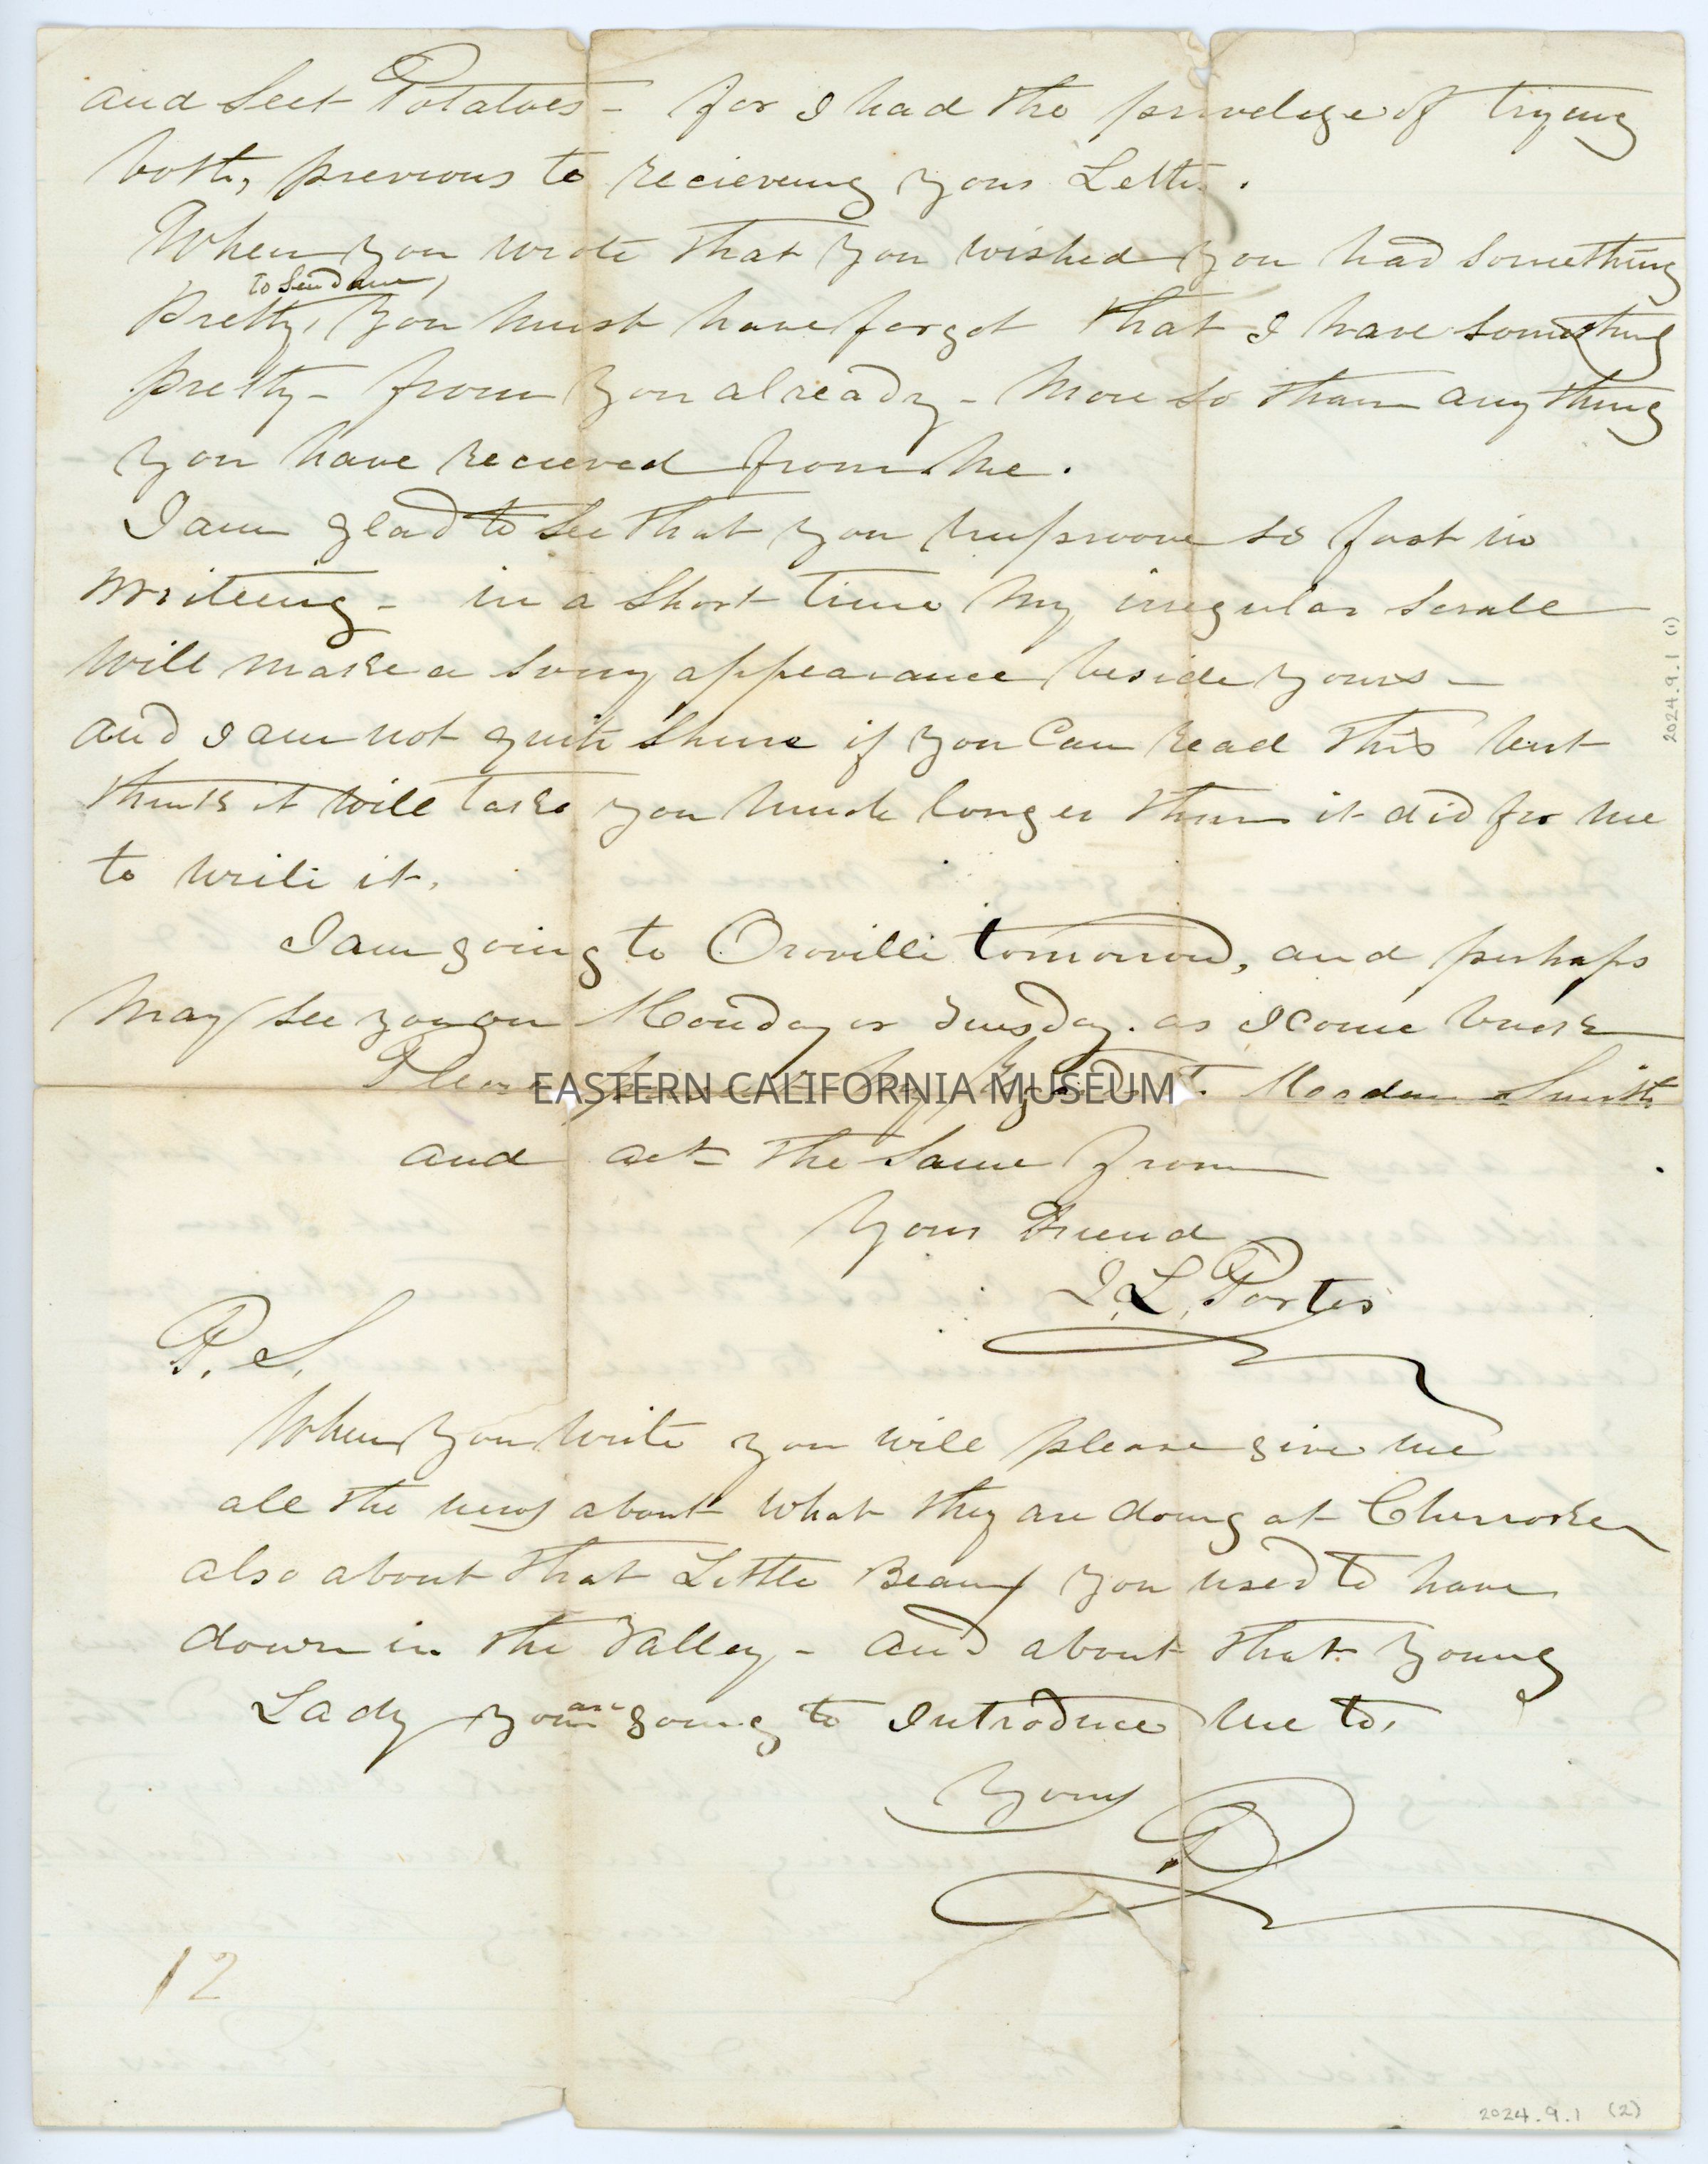 and Seet Potatoes - for I had the privelege of trying
both, previous to recieveing your Letter.
When you wrote that you wished you had Something
to Send me,
Pretty, you must have forgot that I have something
pretty - from you already - More so than anything
you have recieved from Me.
I am glad to See that you improove so fast in
Writeing - in a Short time My irregular Scrall
Will make a Sorry appearance beside yours -
and I am not quite Shure if you Can read this but
think it Will take you much longer than it did for me
to write it.
I am going to Oroville tomorrow, and perhaps
May See you on Monday or Tuesday. as I come back
Please my Smith
EASTERN CALIFORNIA MUSEUM
and act the Same from
Your Friend
J. L. Porter
P. S.
When you Write you will please give me
all the news about What they are doing at Cherrokee
also about that Little Beauy you used to have
down in the Valley - and about that young
Lady you are going to Introduce Me to.
Yours
P
12
2024.9.1 (1)
2024.9.1 (2)